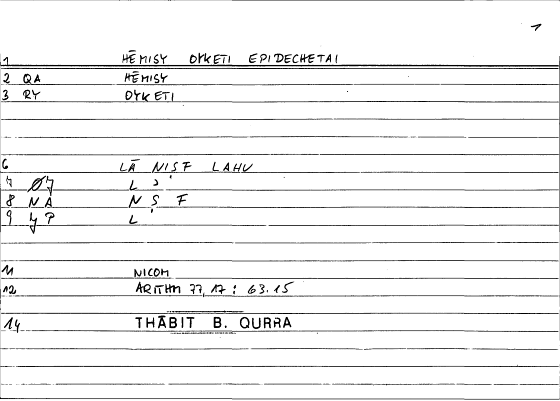 1
1 HĒMISY OYKETI EPIDECHETAI
2 QA HĒMISY
3 RY OYKETI
6 LĀ NISF LAHU
7 L
8 NA N S F
9 L
11 NICOM
12 ARITHM 77,17 : 63.15
14 THĀBIT B. QURRA